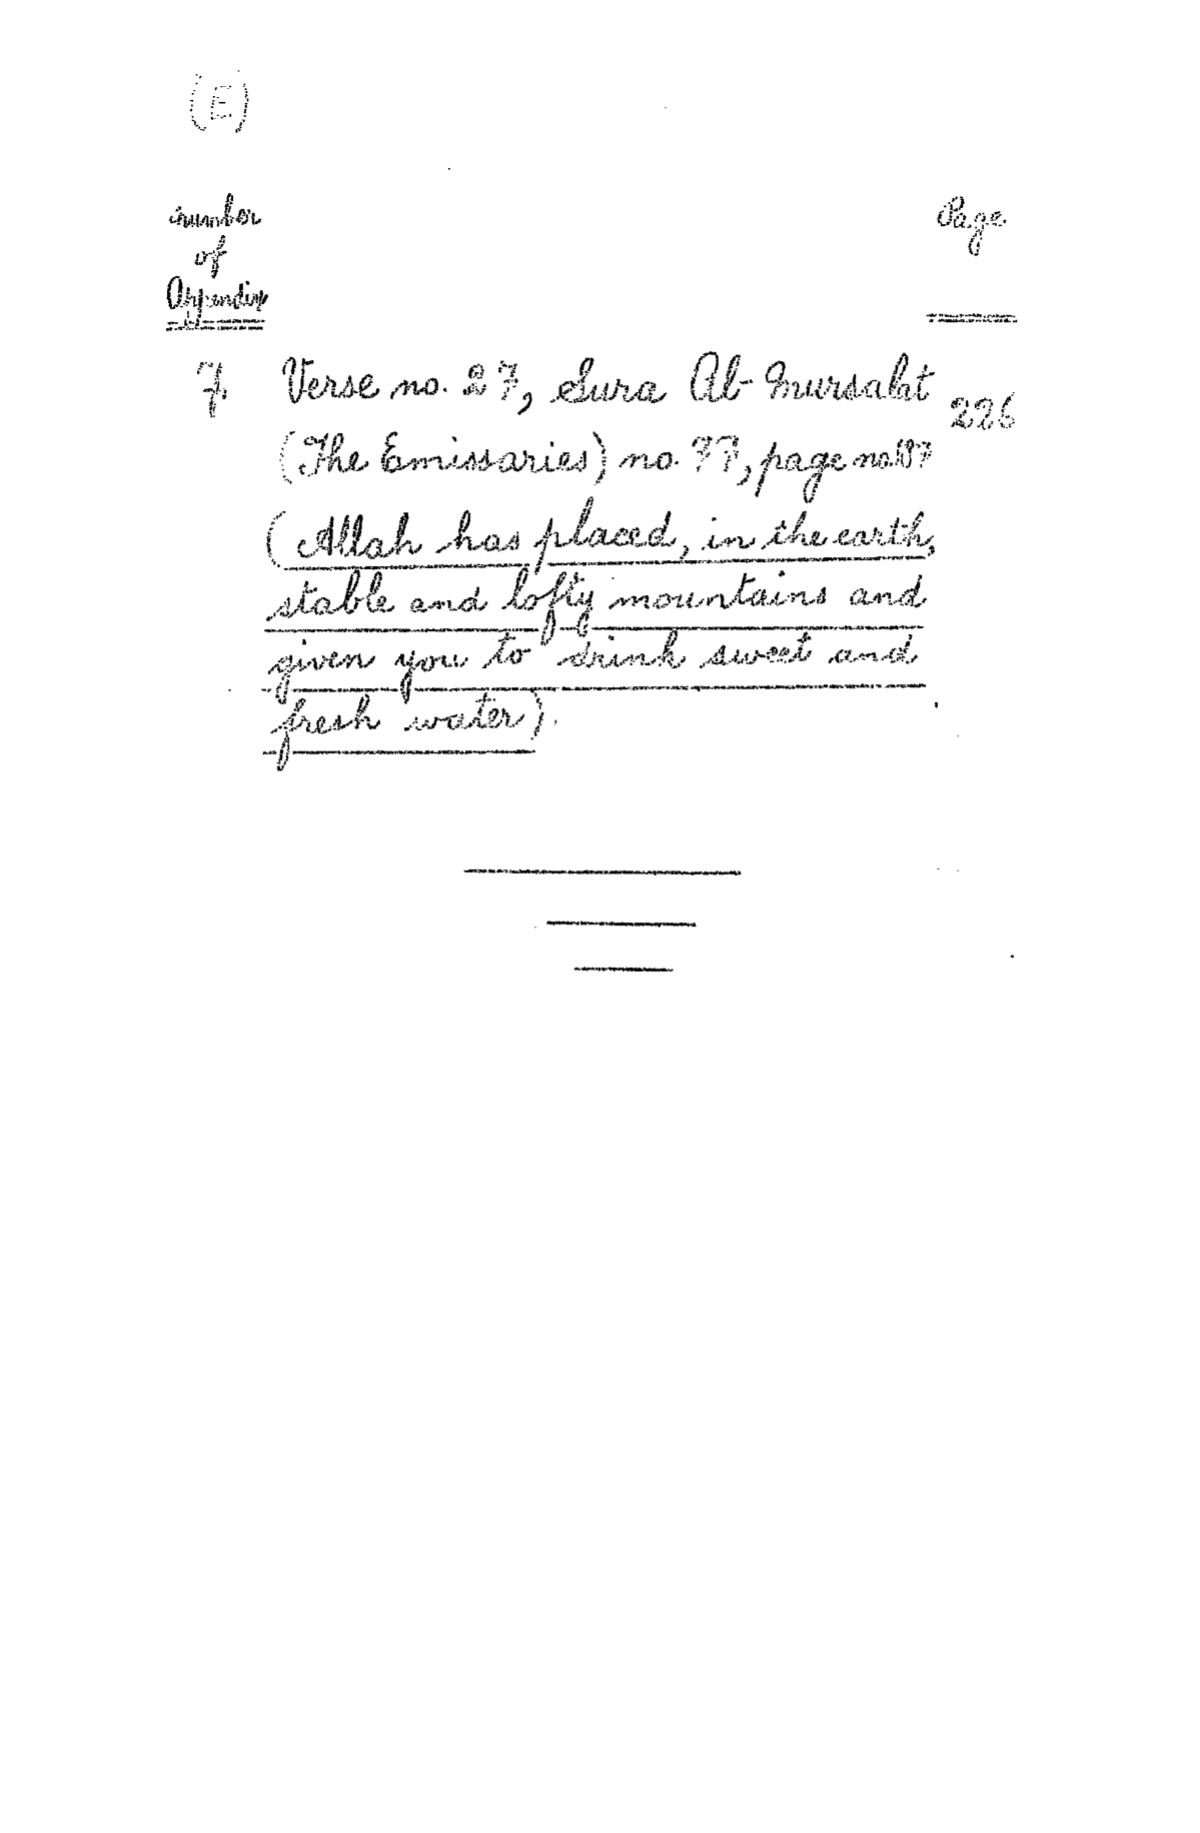 (E)
number Page
of
Appendix
7. Verse no. 27, Sura Al-Mursalat 226
(The Emissaries) no. 77, page no. 187
(Allah has placed, in the earth,
stable and lofty mountains and
given you to drink sweet and
fresh water).